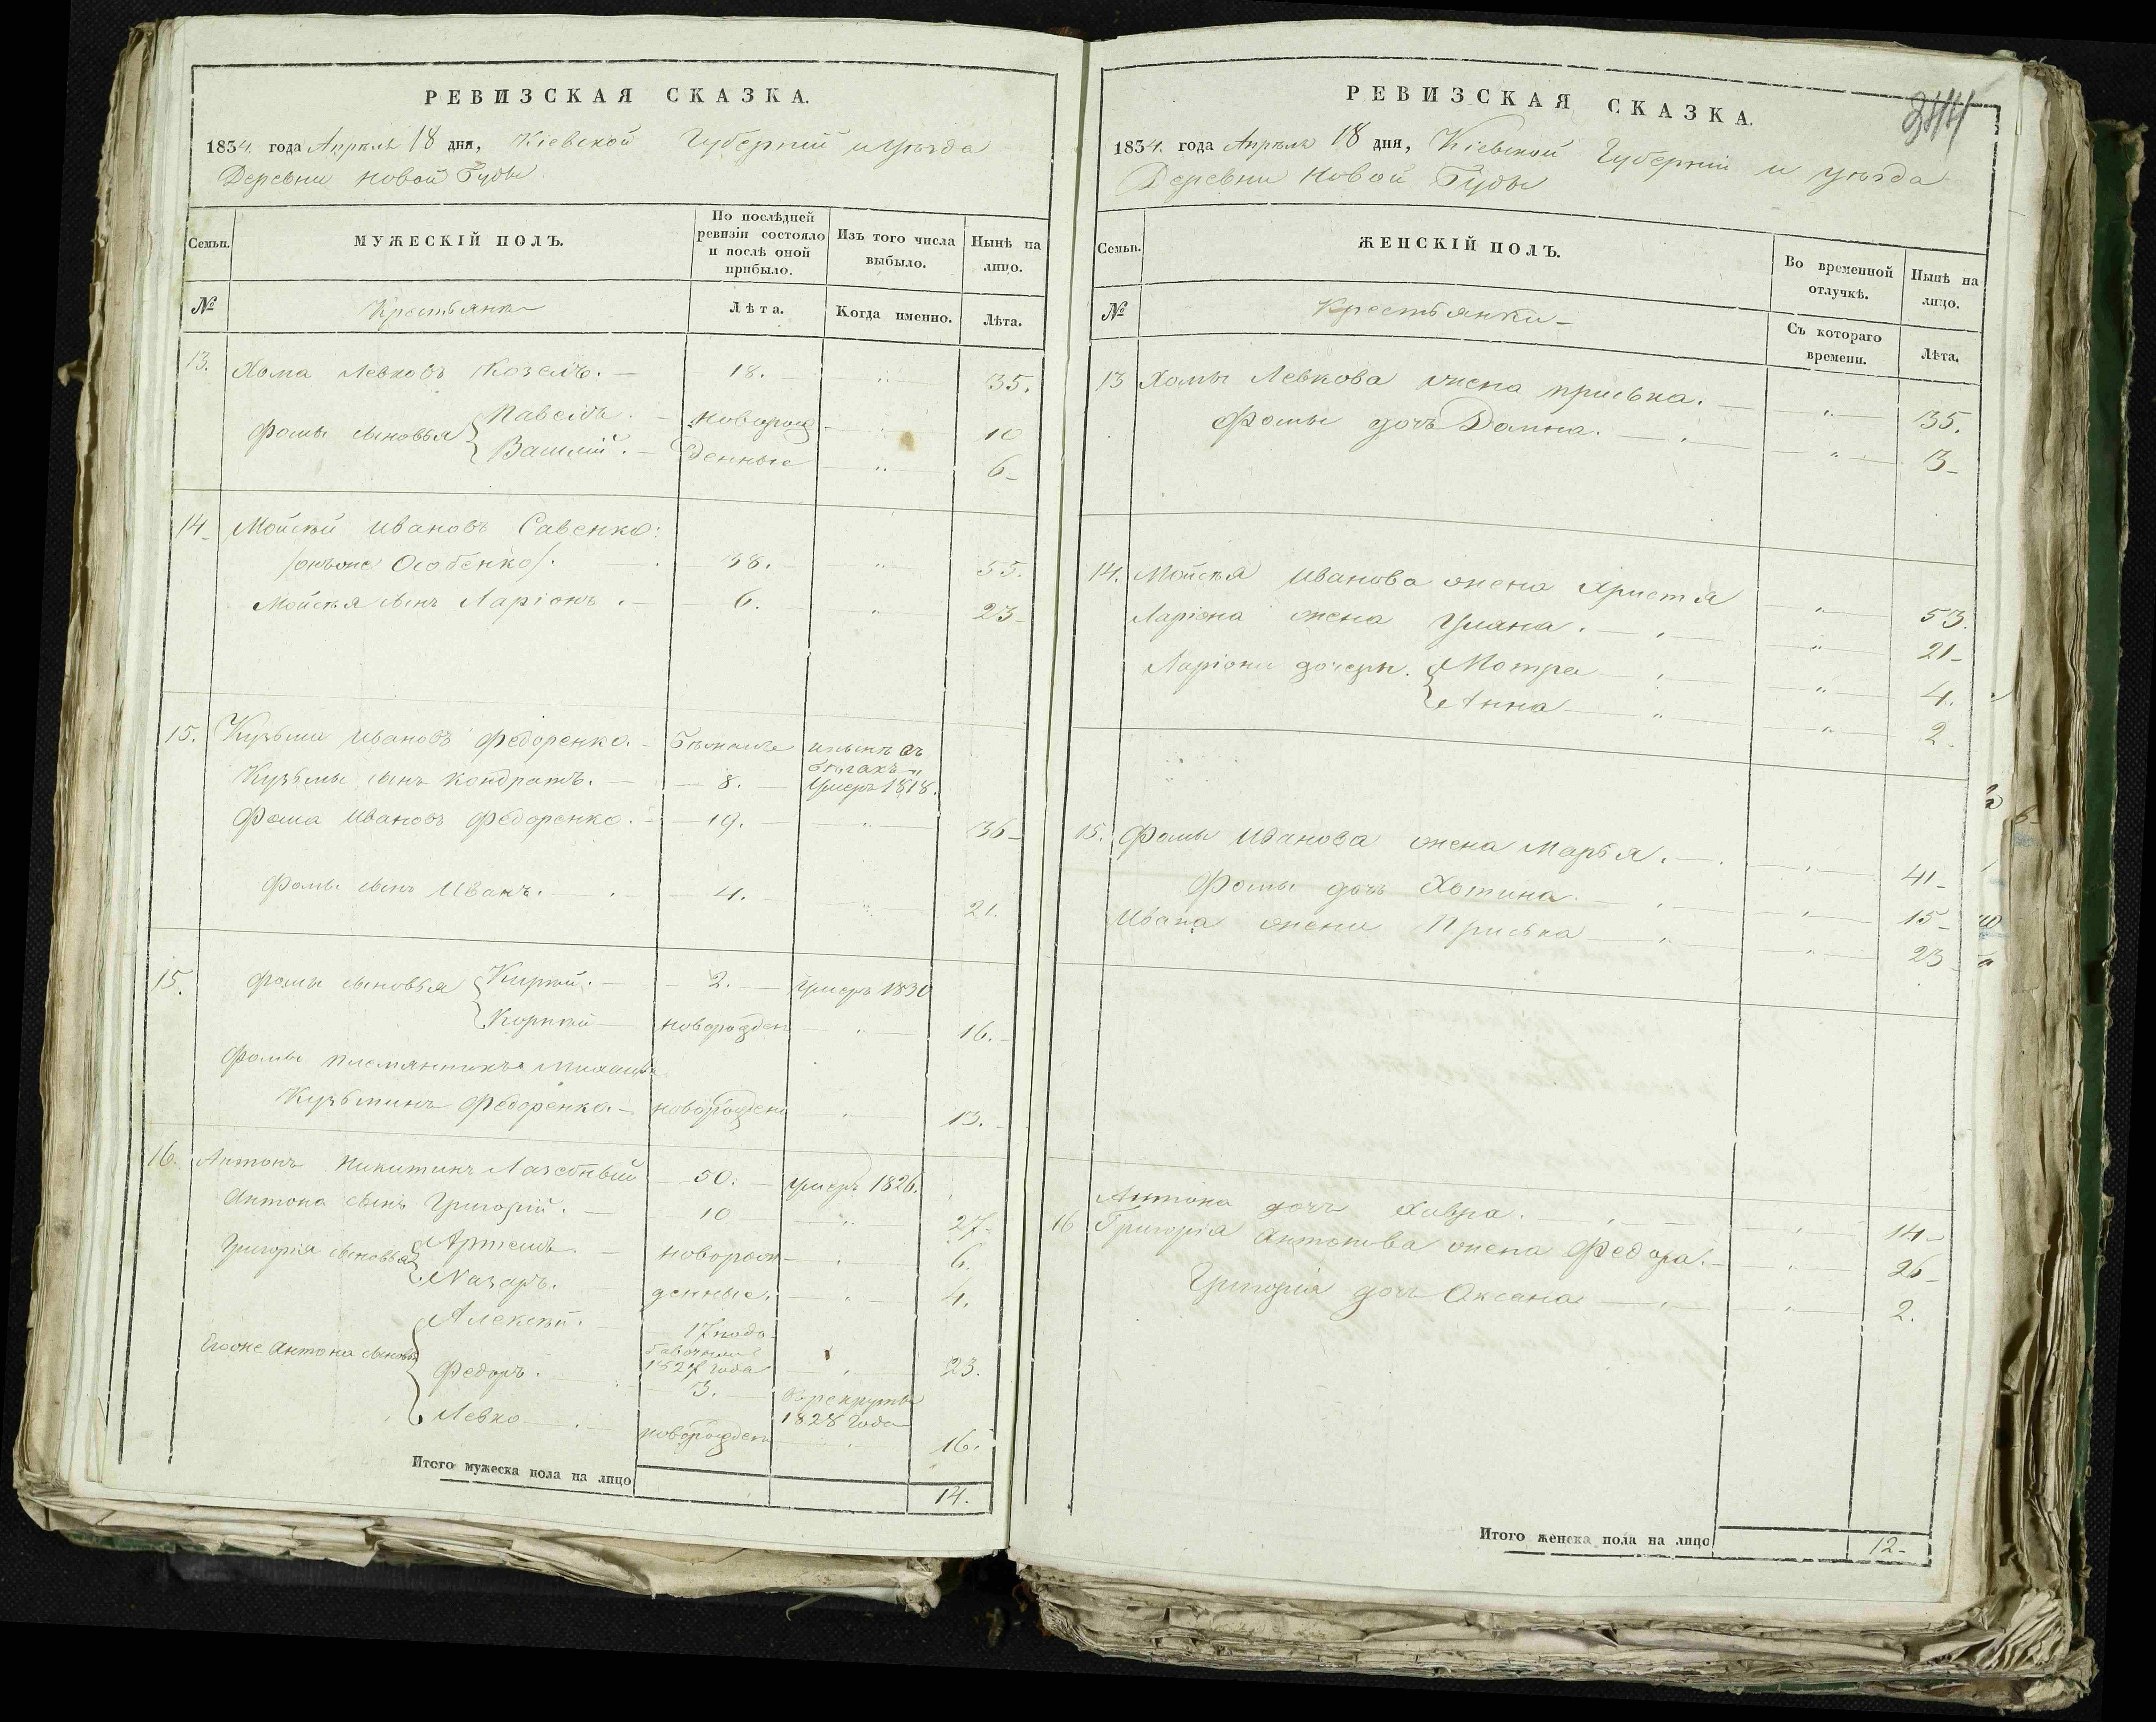 РЕВИЗСКАЯ СКАЗКА.
1834. года Апрѣля 18 дня, Кіевской Губерніи и уѣзда
Деревни Новой Буды
Семьи. МУЖЕСКІЙ ПОЛЪ. По послѣдней ревизіи состояло и послѣ оной прибыло. Изъ того числа выбыло. Нынѣ на лицо.
№ Крестьяне Лѣта. Когда именно. Лѣта.
13. Хома Левковъ Козелъ. 18. " 35.
Фомы сыновья { Павелъ. новорож " 10
Василій. денные " 6
14 Мойсѣй Ивановъ Савенко:
/онъ же Особенко/. 38. " 55.
Мойсѣя сынъ Ларіонъ. 6. " 23
15. Кузьма Ивановъ Федоренко. и нынѣ въ бѣгахъ
Кузьмы сынъ Кондратъ. 8. Умеръ 1818.
Фома Ивановъ Федоренко. 19. " 36
Фомы сынъ Иванъ. 4. " 21.
15. Фомы сыновья { Кирѣй. 2. Умеръ 1830
Корнѣй новорожден " 16.
Фомы племянникъ
Кузьминъ Федоренко новорожден " 13.
16. Антонъ Никитинъ Лазебный 50. умеръ 1826.
Антона сынъ Григорій. 10 " 27
Григорія сыновья { Артемъ. новорож " 6.
Назаръ. денные. " 4.
Его же Антона сыновья { Алексѣй. 17 1827 года " 23.
Федоръ. 3. в рекруты 1828 года
Левко новорожден " 16.
Итого мужеска пола на лицо 14.
РЕВИЗСКАЯ СКАЗКА.
1834. года Апрѣля 18 дня, Кіевской Губерніи и уѣзда
Деревни Новой Буды
Семьи. ЖЕНСКІЙ ПОЛЪ. Во временной отлучкѣ. Нынѣ на лицо.
№ Крестьянки Съ котораго времени. Лѣта.
13 Хомы Левкова жена Приська. " 35.
Фомы дочь Домна. " 13
14. Мойсѣя Иванова жена Христя " 53.
Ларіона жена Уляна. " 21
Ларіона дочери. { Мотря " 4.
Анна " 2.
15. Фомы Иванова жена Марья. " 41
Фомы дочь Хотина. " 15
Ивана жена Приська " 23
Антона дочь Хивря. " 14
16 Григорія Антонова жена Федора. " 26
Григорія дочь Оксана " 2.
Итого женска пола на лицо 12